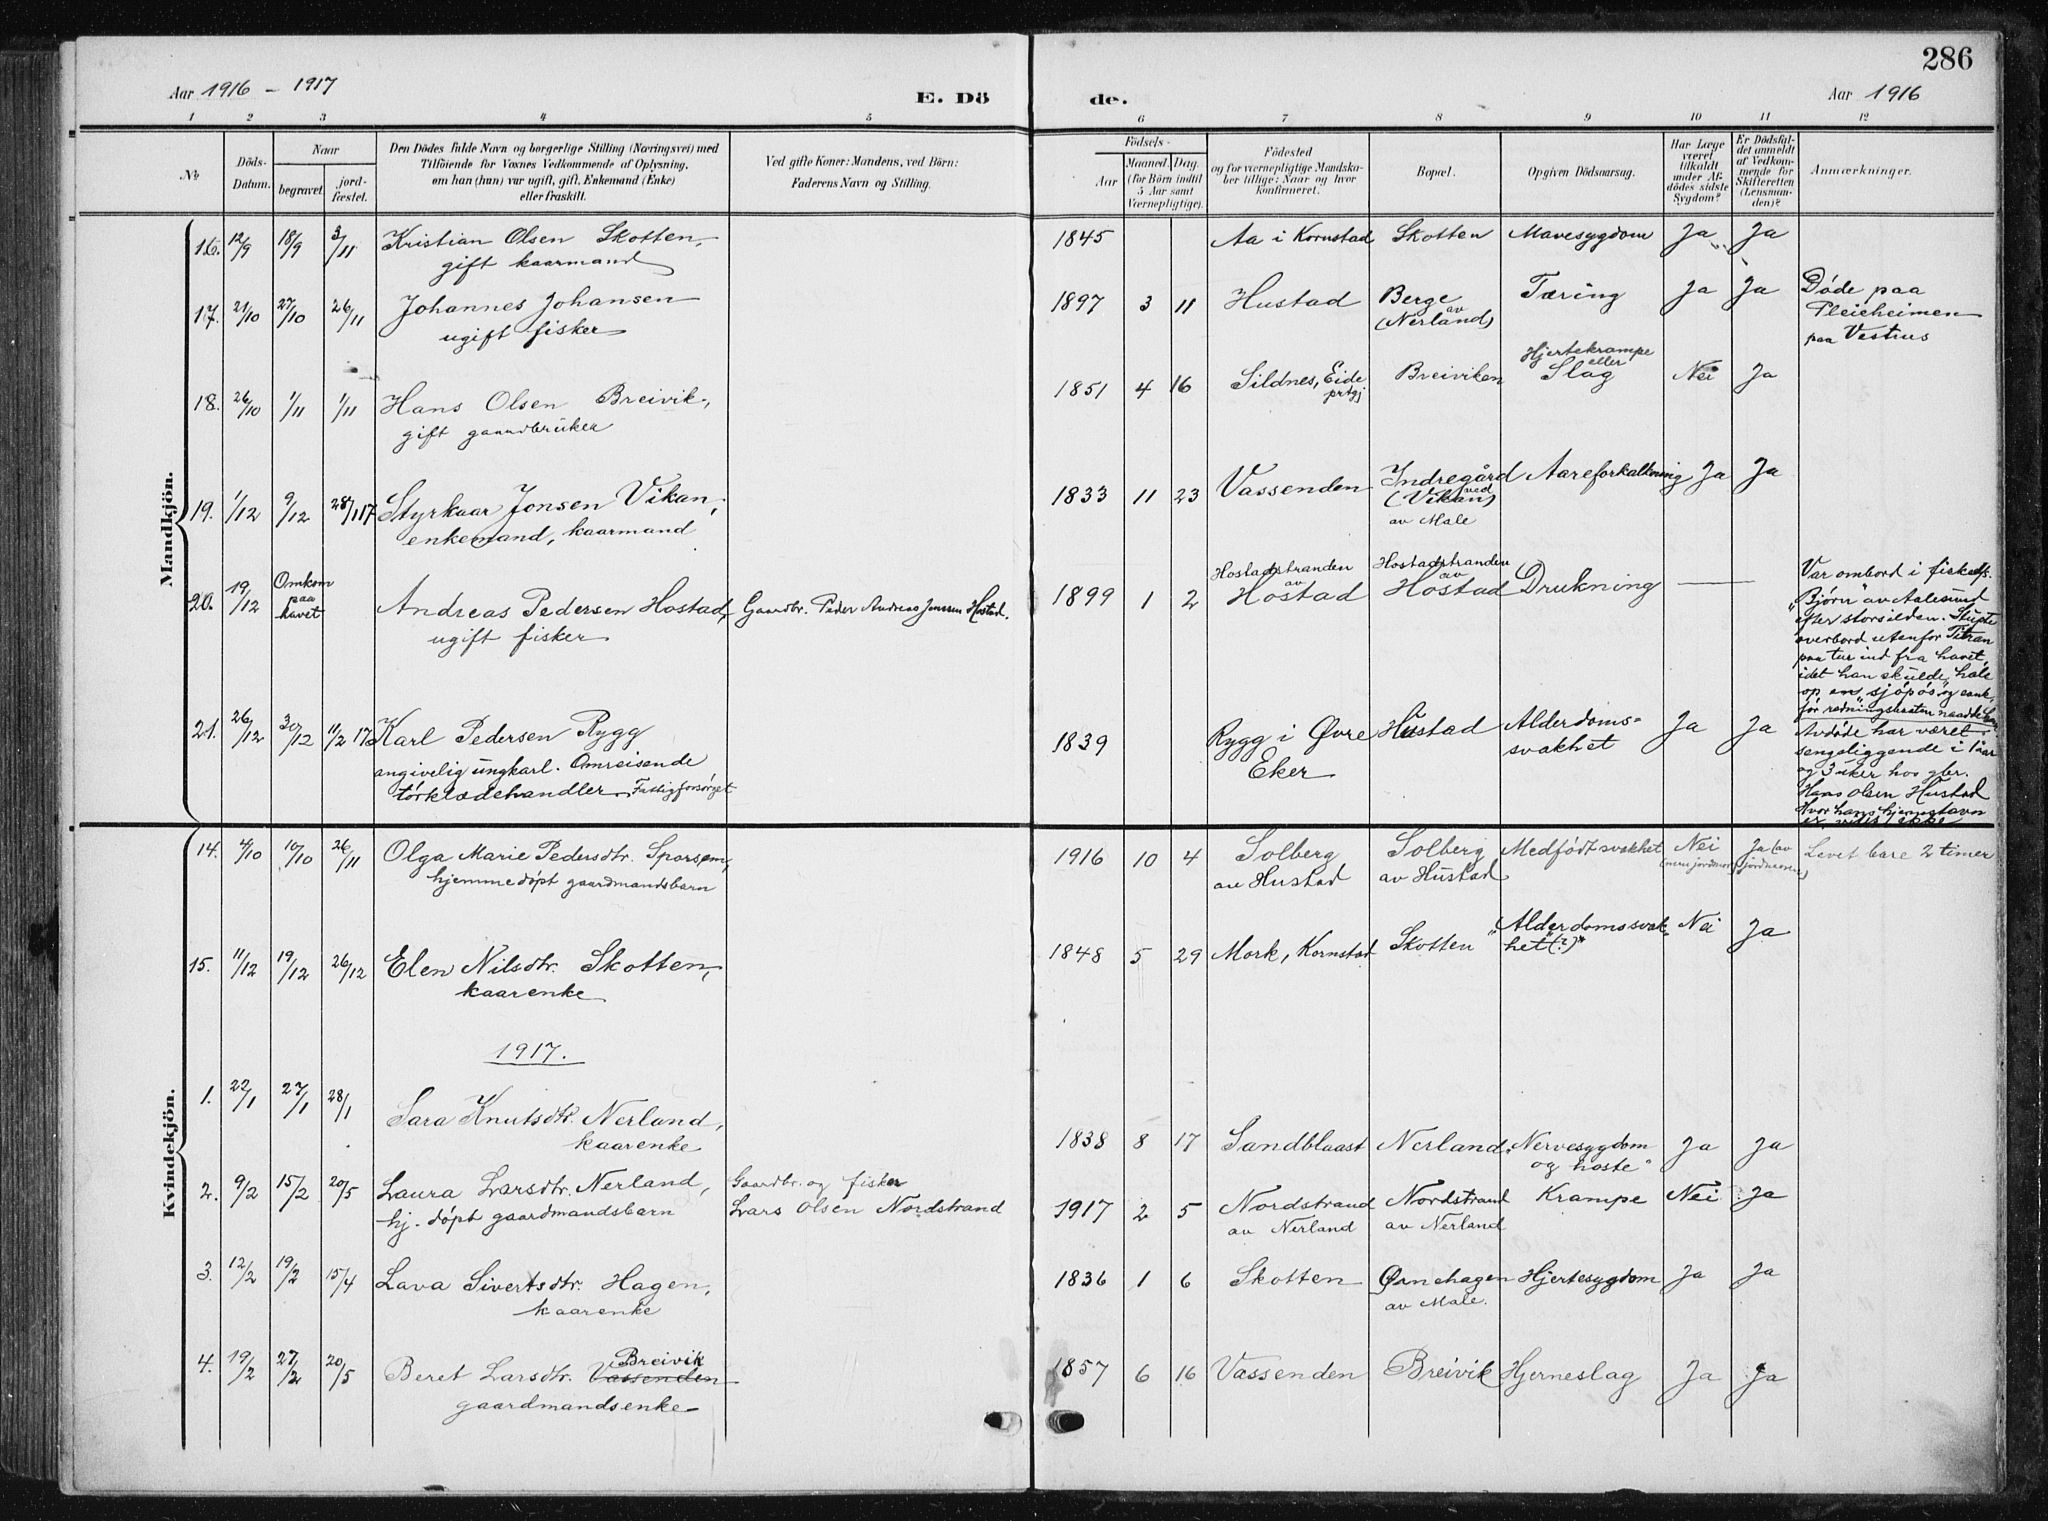 286
Aar 1916 - 1917
E. Dö
de.
Aar 1916
1 2 3 4 5 6 7 8 9 10 11 12
No
Döds-Datum.
Naar
begravet.
jord-fæstet.
Den Dödes fulde Navn og borgerlige Stilling (Næringsvei) med
Tilföiende for Voxnes Vedkommende af Oplysning,
om han (hun) var ugift, gift, Enkemand (Enke)
eller fraskilt.
Ved gifte Koner: Mandens, ved Börn:
Faderens Navn og Stilling.
Födsels-
Aar
Maaned. Dag.
(for Börn indtil
5 Aar samt
Værnepligtige).
Födested
og for værnepligtige Mandska-
ber tillige: Naar og hvor
konfirmeret.
Bopæl.
Opgiven Dödsaarsag.
Har Læge
været
tilkaldt
under Af-
dödes sidste
Sygdom?
Er Dödsfal-
det anmeldt
af Vedkom-
mende for
Skifteretten
(Lensman-
den)?
Anmærkninger.
Mandkjön.
16. 12/9 18/9 3/11 Kristian Olsen Skotten, 1845 Aa i Kornstad Skotten Mavesygdom Ja Ja
gift kaarmand
17. 21/10 27/10 26/11 Johannes Johansen 1897 3 11 Hustad Berge Tæring Ja Ja Døde paa
ugift fisker
av
(Nerland)
Pleieheimen
paa Vestnes
18. 26/10 1/11 1/11 Hans Olsen Breivik, 1851 4 16 Sildnes, Eide Breiviken Hjertekrampe
prtgj
eller
Slag Nei Ja
gift gaardbruker
19. 1/12 9/12 28/1 17 Styrkaar Jonsen Vikan, 1833 11 23 Vassenden Indregård Aareforkalkning Ja Ja
enkemand, kaarmand
ved
(Vikan)
av Male
20. 19/12 Omkom
paa
havet
Andreas Pedersen Hostad, Gaardbr. Peder Andreas Jenssen Hostad. 1899 1 2
ugift fisker
Hostadstranden
av
Hostad
Hostadstranden
av
Hostad
Drukning
Var ombord i
"Bjørn av Aalesund
efter storsilden. Stupte
overbord utenfor Titran
paa tur ind fra havet,
idet han skulde hale
op en "sjøpøs" og sank,
før redningsbaaten naadde
21. 26/12 30/12 11/2 17 Karl Pedersen Rygg 1839 Rygg i Øvre
Eker
Hustad Alderdoms-
svakhet Ja Ja
angivelig ungkarl. Omreisende
tørklædehandler. Fattigforsørget
Avdøde har været
sengeliggende i 1 aar
og 3 uker hos gbr.
Hans Olsen Hustad
Hvor hans hjemstavn
er, vides ikke
Kvindekjön.
14. 4/10 10/10 26/11 Olga Marie Pedersdtr. Sporsem, 1916 10 4 Solberg
av Hustad
Solberg
av Hustad
Medfødt svakhet Nei
(men jordmor)
Ja (av
jordmoren)
Levet bare 2 timer
hjemmedøpt gaardmandsbarn
15. 11/12 19/12 26/12 Elen Nilsdtr. Skotten, 1848 5 29 Mork, Kornstad Skotten "Alderdomssvak-
het (?)" Nei Ja
kaarenke
1917.
1. 22/1 27/1 28/1 Sara Knutsdtr. Nerland, 1838 8 17 Sandblaast Nerland "Nervesygdom
og hoste" Ja Ja
kaarenke
2. 9/2 15/2 20/5 Laura Larsdtr. Nerland,
hj. døpt gaardmandsbarn
Gaardbr. og fisker
Lars Olsen Nordstrand
1917 2 5 Nordstrand
av Nerland
Nordstrand
av Nerland
Krampe Nei Ja
3. 12/2 19/2 15/4 Lava Sivertsdtr. Hagen, 1836 1 6 Skotten Ørnehagen
av Male.
Hjertesygdom Ja Ja
kaarenke
4. 19/2 27/2 20/5 Beret Larsdtr. Vassenden
Breivik
gaardmandsenke
1857 6 16 Vassenden Breivik Hjerneslag Ja Ja